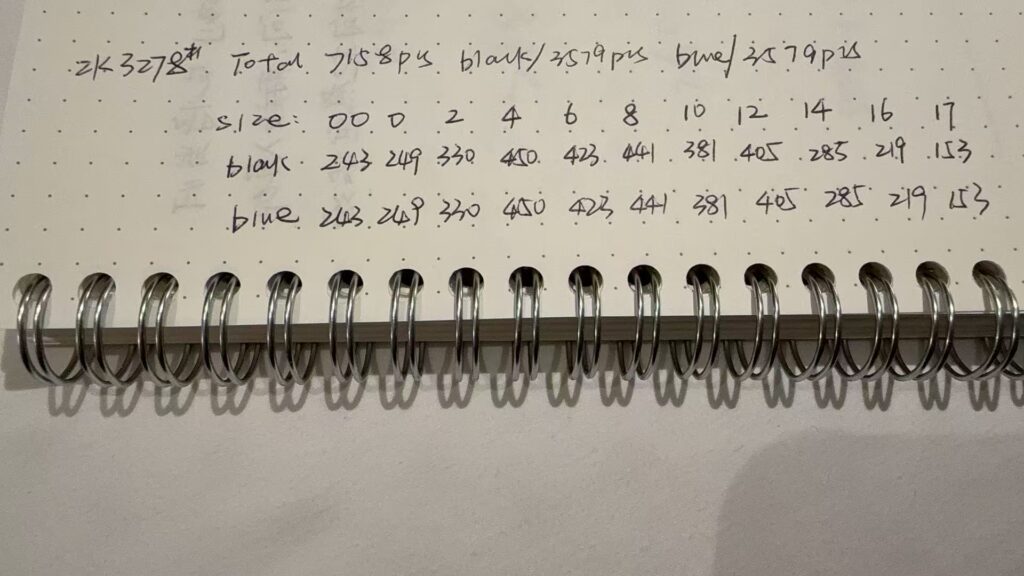 2K3278# Total 7158pis black/3579pis blue/3579pis
size: 00 0 2 4 6 8 10 12 14 16 17
black 243 249 330 450 423 441 381 405 285 219 153
blue 243 249 330 450 423 441 381 405 285 219 153